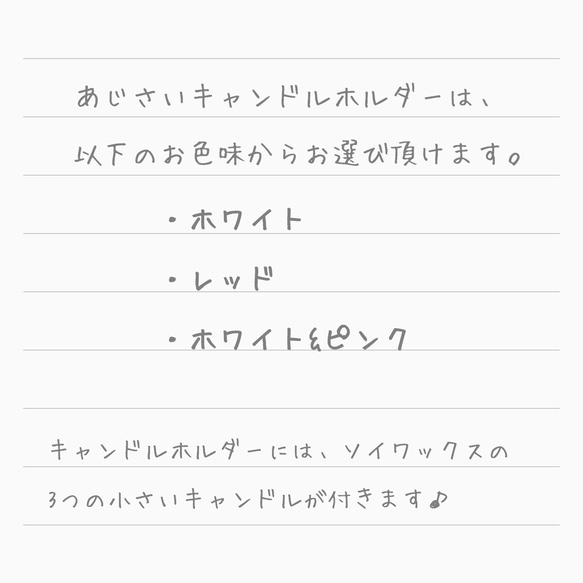 あじさいキャンドルホルダーは、
以下のお色味からお選び頂けます。
・ホワイト
・レッド
・ホワイト&ピンク
キャンドルホルダーには、ソイワックスの
3つの小さいキャンドルが付きます♪